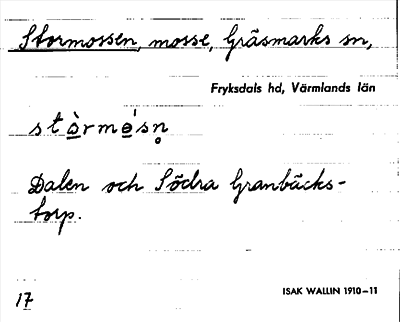 Stormossen, mosse, Gräsmarks sn,
Fryksdals hd, Värmlands län
Dalen och Södra Granbäcks-
torp.
17
ISAK WALLIN 1910-11